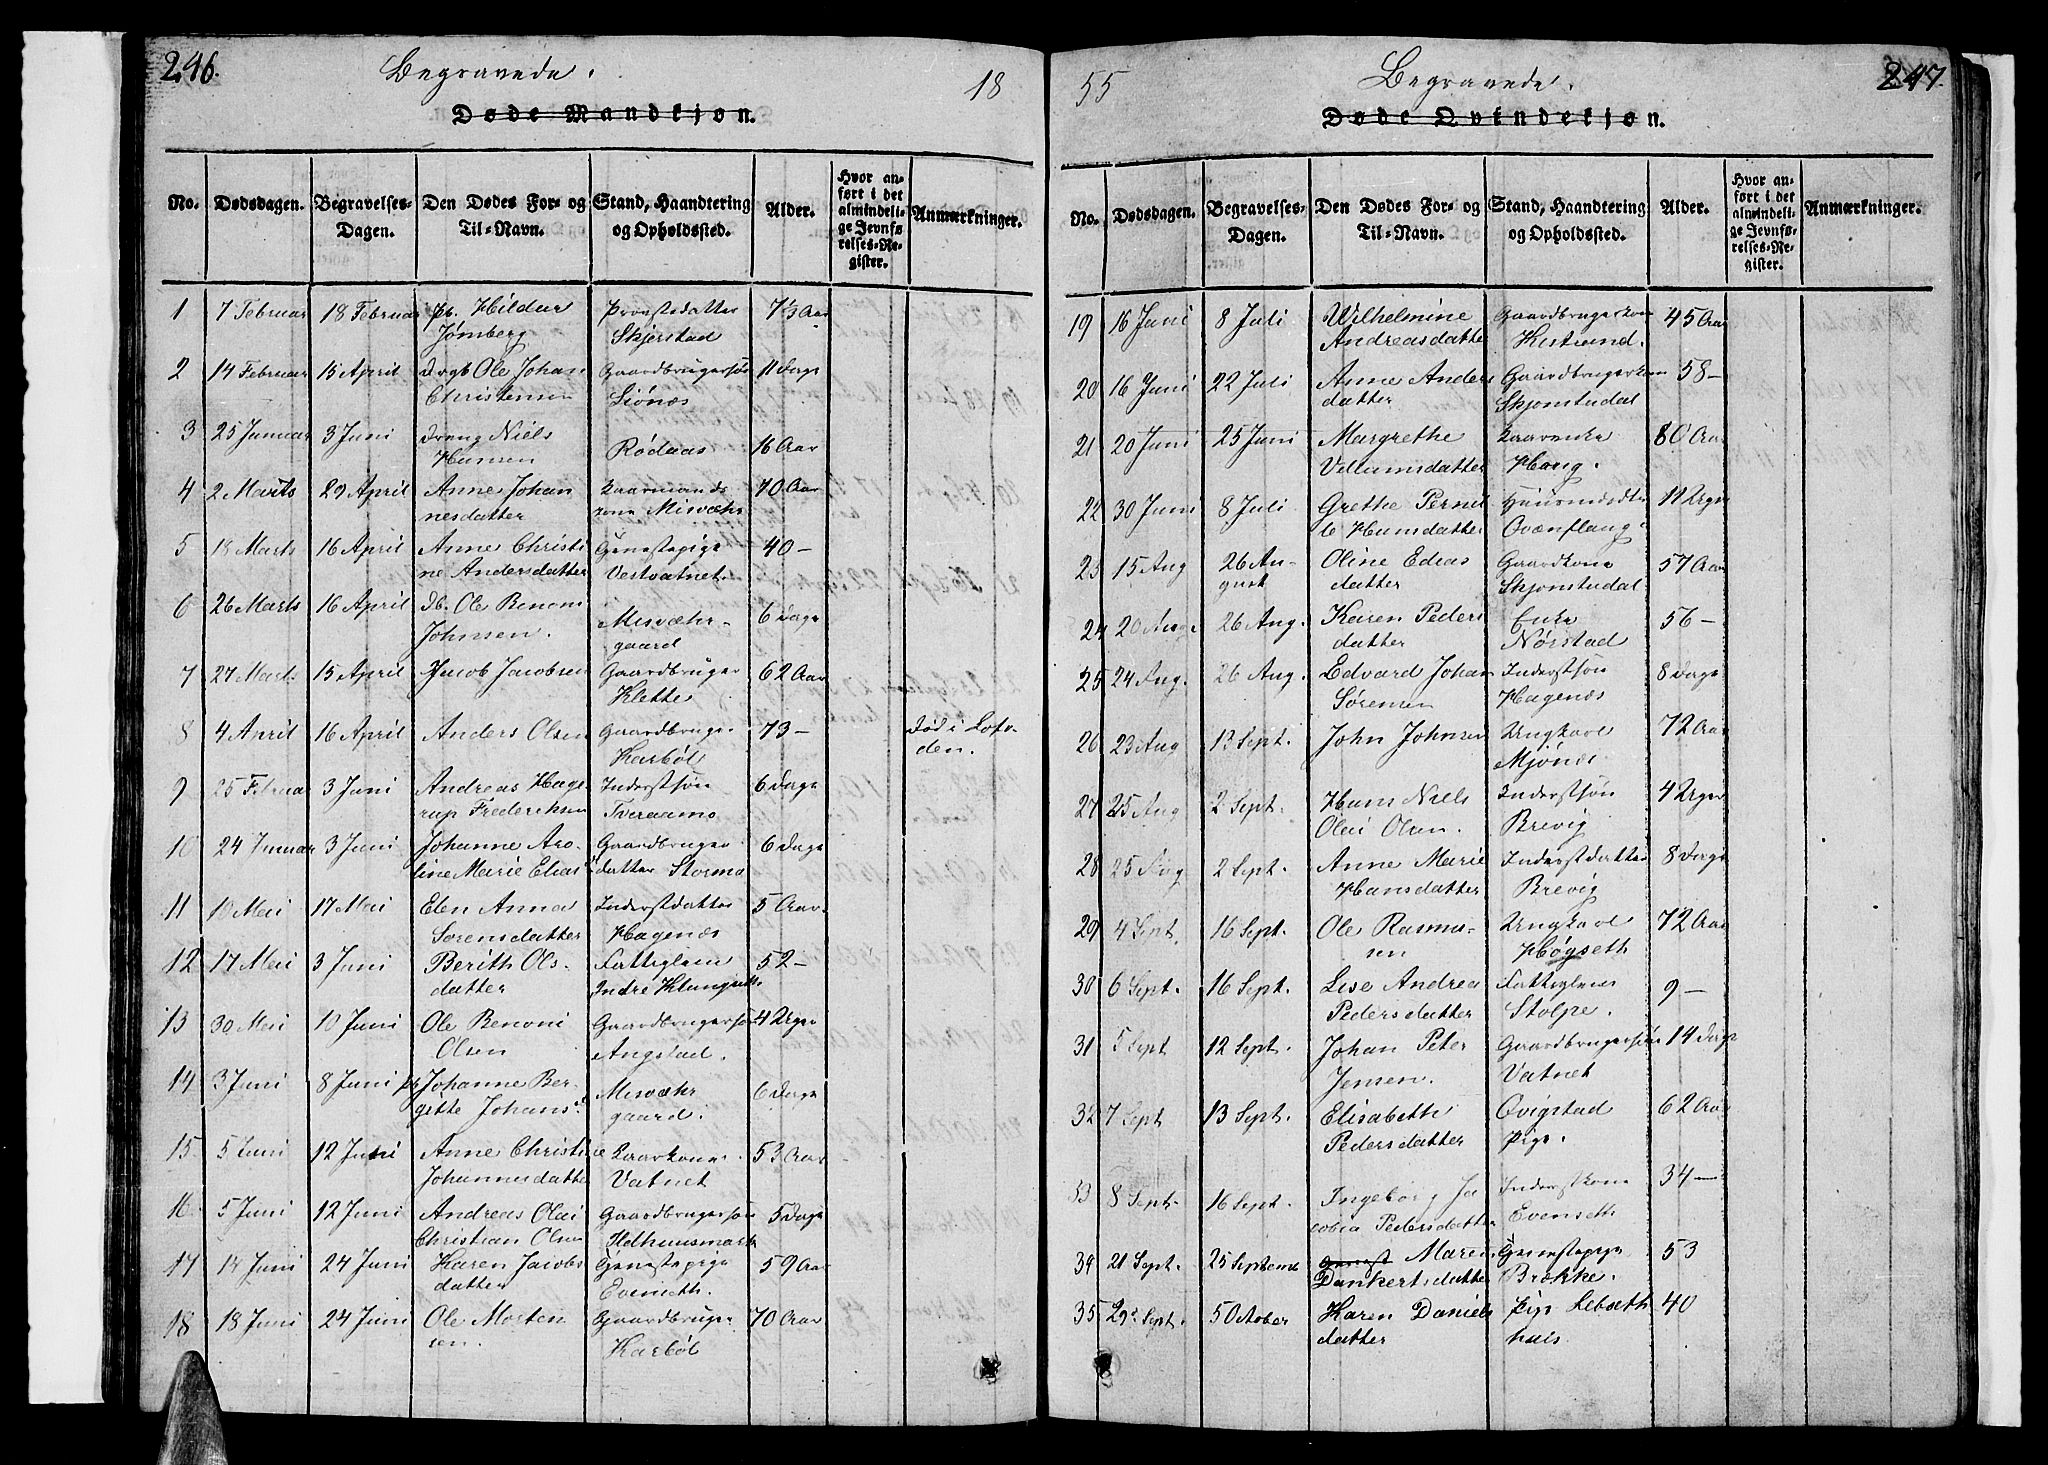 246.
Begravede.
18
Døde Mandkjøn.
No.
Dødsdagen.
Begravelses-
Dagen.
Den Dødes For- og
Til-Navn.
Stand, Haandtering
og Opholdssted.
Alder.
Hvor an-
ført i det
almindeli-
ge Jevnfø-
relses-Re-
gister.
Anmærkninger.
1 7 Februar 18 Februar Hildur Provstedatter 7 1/3 Aar
Skjerstad
2 14 Februar 15 April Ole Johan Gaardbrugersøn 11 Dage
Christensen
3 25 Januar 3 Juni Dreng Niels 16 Aar
Hansen Rødaas
4 2 Marts 29 April Anne Johan Kaarmands 70 Aar
nesdatter kone Misvæhr
5 18 Marts 16 April Anne Christi Gjenestepige 40 –
ne Andersdatter Vestvatnet.
6 26 Marts 16 April Db. Ole Benoni Misvæhr- 6 Dage
Johnsen. gaard
7 27 Marts 15 April Jacob Jacobsen Gaardbruger 62 Aar
Klette
8 4 April 16 April Anders Olsen Gaardbruger 73 – Død i Lofo-
Karbøl den.
9 25 Februar 3 Juni Andreas Hage Inderstsøn 6 Dage
rup Frederiksen Tveraamo
10 24 Januar 3 Juni Johanne Aro- Gaardbruger 6 Dage
line Marie Elias d datter Stormo
11 10 Mai 17 Mai Elen Anna Inderstdatter 5 Aar
Sorensdatter Hagenæs
12 17 Mai 3 Juni Berith Ols- Fattiglem 52 –
datter Indre Klungset
13 30 Mai 10 Juni Ole Benoni Gaardbrugersøn 4 Uger
Olsen Angstad.
14 3 Juni 8 Juni Johanne Ber- Misvæhr 6 Dage
gitte Johans d gaard.
15 5 Juni 12 Juni Anne Christine Kaarkone 53 Aar
Johannesdatter Vatnet
16 5 Juni 12 Juni Andreas Olai Gaardbrugersøn 5 Dage
Christian Olsen Ildhuusmark
17 14 Juni 24 Juni Karen Jacobs Gjenestepige 59 Aar
datter Evenseth.
18 18 Juni 24 Juni Ole Morten Gaardbruger 70 Aar
sen. Karbøl
55
Begravede.
247.
Døde Qvindekjøn.
No.
Dødsdagen.
Begravelses-
Dagen.
Den Dødes For- og
Til-Navn.
Stand, Haandtering
og Opholdssted.
Alder.
Hvor an-
ført i det
almindeli-
ge Jevnfø-
relses-Re-
gister.
Anmærkninger.
19 16 Juni 8 Juli Wilhelmine Gaardbrugerkone 45 Aar
Andreasdatter Kistrand.
20 16 Juni 22 Juli Anne Anders Gaardbrugerkone 58 –
datter Skjonstudal
21 20 Juni 25 Juni Margrethe Kaarenke 80 Aar
Vellumsdatter Haug.
22 30 Juni 8 Juli Grethe Pernil Huusmdsdtr 11 Uger
le Hansdatter Qvænflaug
23 15 Aug 26 Au- Oline Edias Gaardkone 57 Aar
gust datter Skjonstudal
24 20 Aug. 26 Aug. Karen Peders Enke 56 –
datter Nørstad
25 24 Aug. 26 Aug. Edvard Johan Inderstsøn 8 Dage
Sørensen Hagenæs
26 23 Aug 13 Sept. John Johnsen Ungkarl 72 Aar
Mjønæs
27 25 Aug 2 Sept. Hans Niels Inderstsøn 4 Uger
Olai Olsen. Brevig
28 25 Aug 2 Sept. Anne Marie Inderstdatter 8 Dage
Hansdatter Brevig
29 4 Sept. 16 Sept. Ole Rasmu- Ungkarl 72 Aar
sen Høgseth
30 6 Sept. 16 Sept. Lise Andrea Fattiglem 9 –
Pedersdatter Stolpe.
31 5 Sept 12 Sept. Johan Peter Gaardbrugersøn 14 Dage
Jensen. Vatnet
32 7 Sept 13 Sept. Elisabeth Qvigstad 62 Aar
Pedersdatter Pige.
33 8 Sept. 16 Sept. Ingeborg Ja Inderstkone 34 –
cobia Pedersdatter Evenseth
34 21 Sept. 25 September Maren Gjenestepige 53
Dankertsdatter Brække.
35 29 Sept. 5 October Karen Daniels Pige Lebseth 40
datter huis